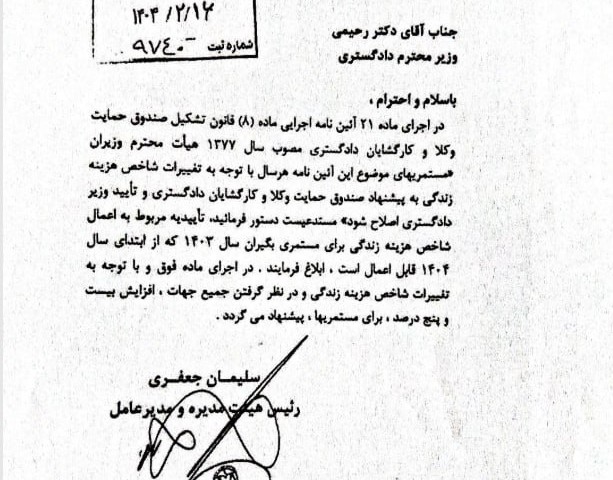 ۱۴۰۴/۲/۱۶
شماره ثبت ۹۷۴۰۰
جناب آقای دکتر رحیمی
وزیر محترم دادگستری
باسلام و احترام ،
در اجرای ماده ۲۱ آئین نامه اجرایی ماده (۸) قانون تشکیل صندوق حمایت
وکلا و کارگشایان دادگستری مصوب سال ۱۳۷۷ هیأت محترم وزیران
«مستمریهای موضوع این آئین نامه هرسال با توجه به تغییرات شاخص هزینه
زندگی به پیشنهاد صندوق حمایت وکلا و کارگشایان دادگستری و تأیید وزیر
دادگستری اصلاح شود» مستدعیست دستور فرمائید، تأییدیه مربوط به اعمال
شاخص هزینه زندگی برای مستمری بگیران سال ۱۴۰۳ که از ابتدای سال
۱۴۰۴ قابل اعمال است ، ابلاغ فرمایند . در اجرای ماده فوق و با توجه به
تغییرات شاخص هزینه زندگی و در نظر گرفتن جمیع جهات ، افزایش بیست
و پنج درصد ، برای مستمریها ، پیشنهاد می گردد .
سلیمان جعفری
رئیس هیئت مدیره و مدیرعامل